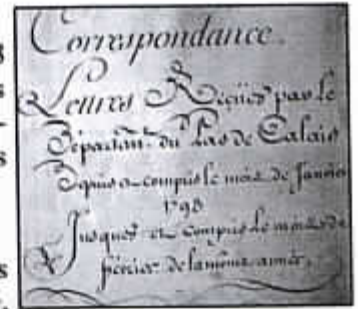 Correspondance.
Lettres Reçües par le
Départem.t du Pas de Calais
Depuis et compris le mois de Janvier
1793
Jusques et compris le mois de
février de la même année.